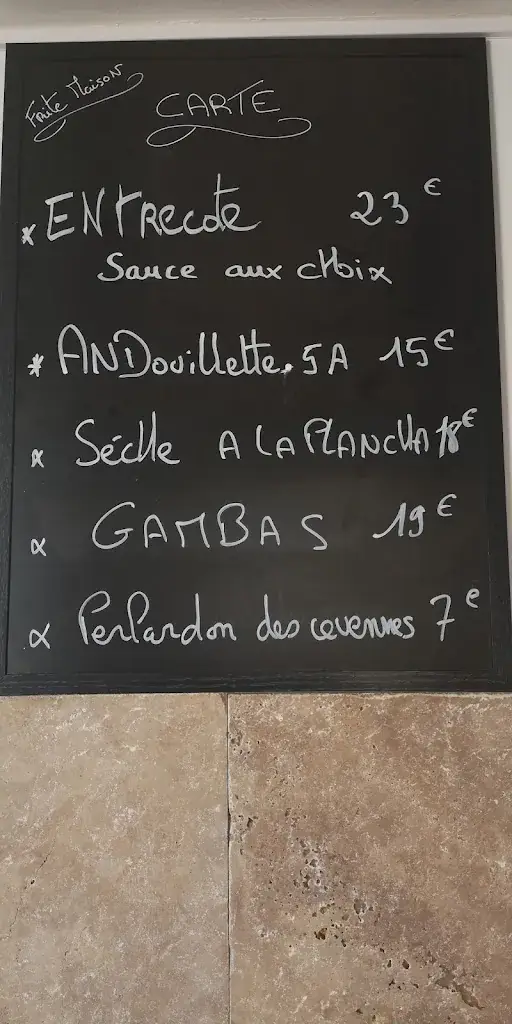 Frite Maison
CARTE
* ENTrecote 23 €
Sauce aux cHoix
* ANDouillette. 5A 15 €
* SécHe A LA PLANCHA 18 €
* GAMBAS 19 €
* Perlardon des cevennes 7 €